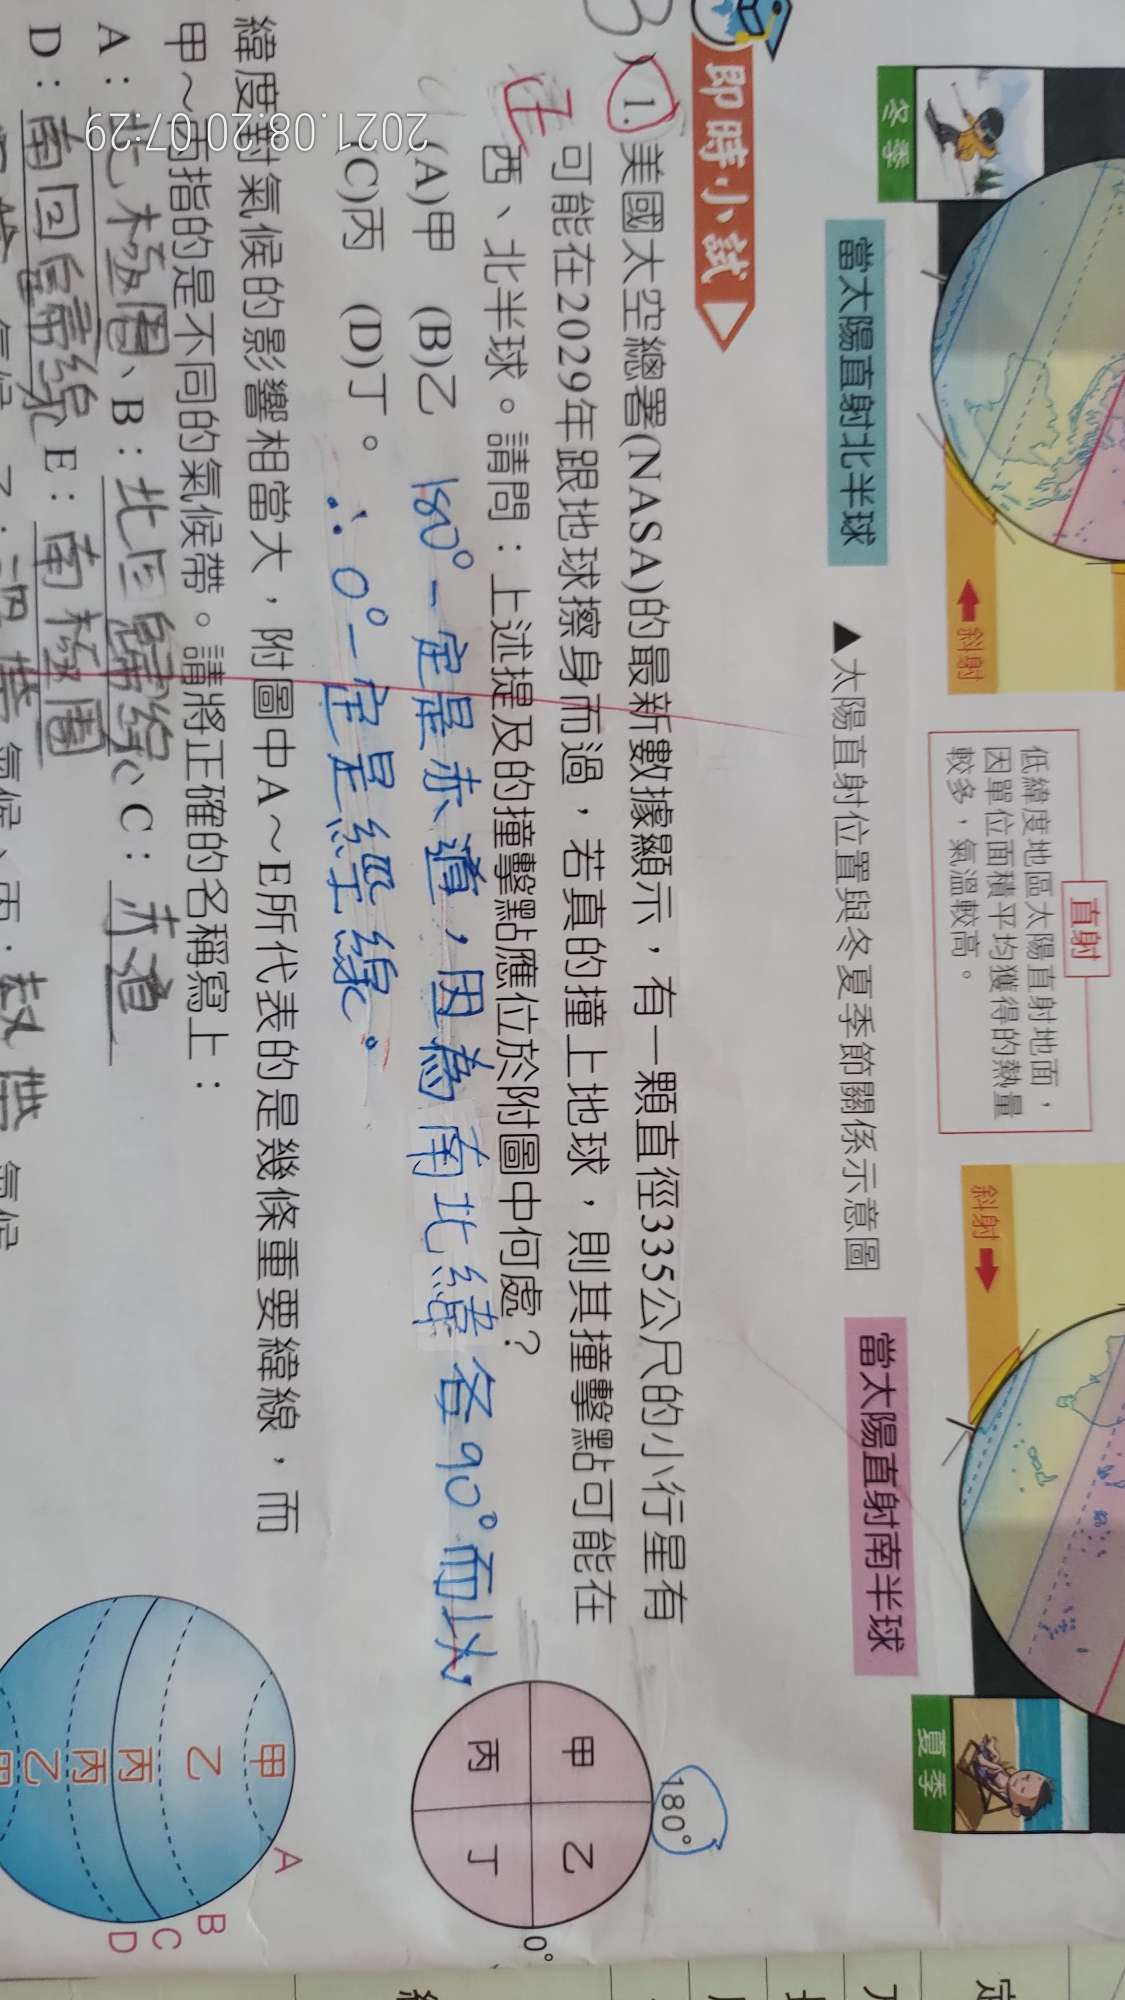 冬季
當太陽直射北半球
斜射
直射
低緯度地區太陽直射地面，
因單位面積平均獲得的熱量
較多，氣溫較高。
斜射
當太陽直射南半球
夏季
▲太陽直射位置與冬夏季節關係示意圖
即時小試
1.美國太空總署(NASA)的最新數據顯示，有一顆直徑335公尺的小行星有
可能在2029年跟地球擦身而過，若真的撞上地球，則其撞擊點可能在
西、北半球。請問：上述提及的撞擊點應位於附圖中何處？
(A)甲 (B)乙
(C)丙 (D)丁。
180°一定是赤道，因為南北緯各90°而以，
∴0°一定是經線。
180°
甲 乙
丙 丁
0°
緯度對氣候的影響相當大，附圖中A～E所代表的是幾條重要緯線，而
甲～丙指的是不同的氣候帶。請將正確的名稱寫上：
A：北極圈、B：北回歸線、C：赤道
D：南回歸線、E：南極圈
氣候、乙：溫帶氣候、丙：熱帶氣候
甲
乙
丙
丙
乙
甲
A
B
C
D
2021.08.20 07:29